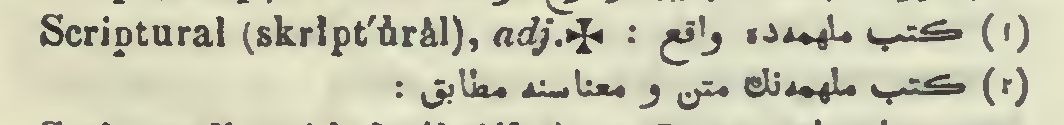 Scriptural (skrĭpt′ŭrăl), adj.✠ (١) كتب ملهمه‌ده واقع :
(٢) كتب ملهمه‌نك متن و معناسنه مطابق :